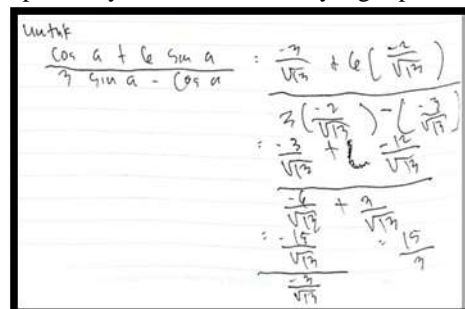 untuk
cos a + 6 sin a / 3 sin a - cos a = -3/√13 + 6(-2/√13) / 3(-2/√13) - (-3/√13)
= -3/√13 + -12/√13 / -6/√13 + 3/√13
= -15/√13 / -3/√13 = 15/3